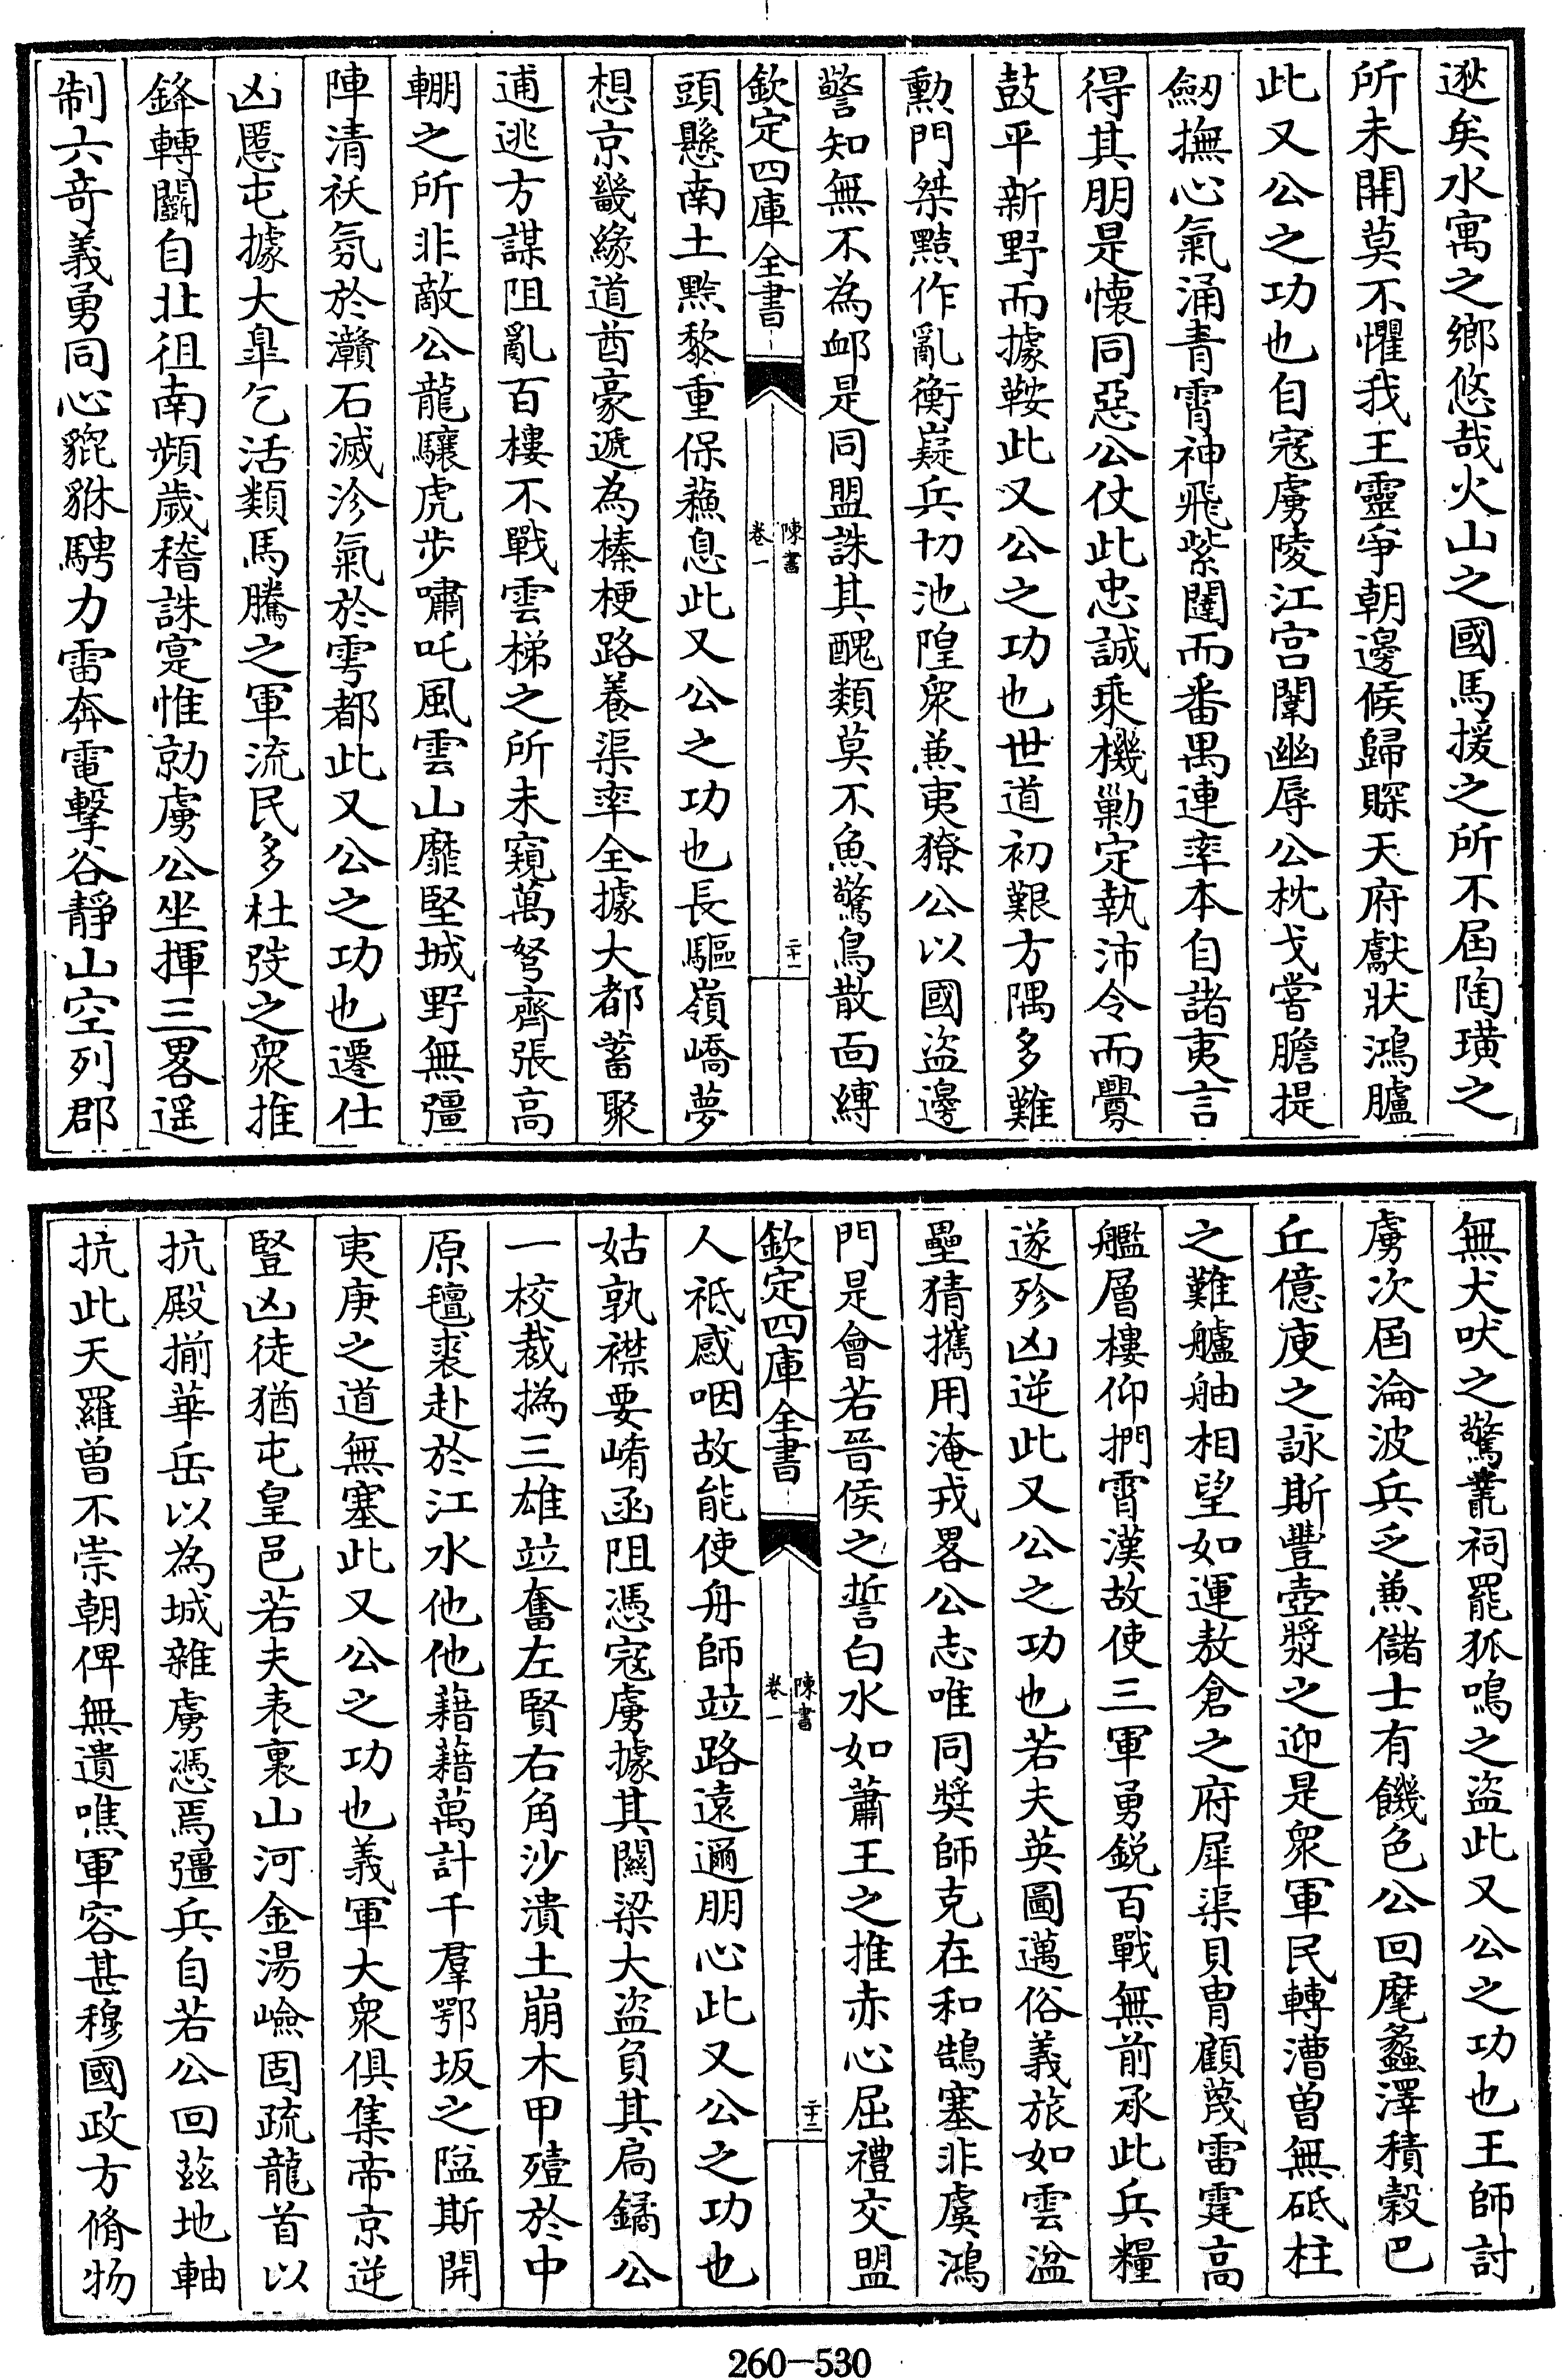 逖矣水寓之鄉悠哉火山之國馬援之所不屆陶璜之
所未開莫不懼我王靈爭朝邊候歸賝天府獻狀鴻臚
此又公之功也自寇虜陵江宮闈幽辱公枕戈嘗膽提
劒撫心氣涌青霄神飛紫闥而番禺連率本自諸夷言
得其朋是懷同惡公仗此忠誠乘機勦定執沛令而釁
鼓平新野而據鞍此又公之功也世道初艱方隅多難
勳門桀黠作亂衡嶷兵切池隍衆兼夷獠公以國盜邊
警知無不為卹是同盟誅其醜類莫不魚驚鳥散面縛
欽定四庫全書
陳書
卷一
二十一
頭懸南土黔黎重保蘓息此又公之功也長驅嶺嶠夢
想京畿緣道酋豪遞為榛梗路養渠率全據大都蓄聚
逋逃方謀阻亂百樓不戰雲梯之所未窺萬弩齊張高
輣之所非敵公龍驤虎步嘯吒風雲山靡堅城野無彊
陣清祅氛於灨石滅沴氣於雩都此又公之功也遷仕
凶慝屯據大臯乞活類馬騰之軍流民多杜弢之衆推
鋒轉鬭自北徂南頻歲稽誅寔惟勍虜公坐揮三畧遥
制六竒義勇同心貔貅騁力雷奔電擊谷靜山空列郡
無犬吠之驚叢祠罷狐鳴之盜此又公之功也王師討
虜次屆淪波兵乏兼儲士有饑色公回麾蠡澤積穀巴
丘億庾之詠斯豐壺漿之迎是衆軍民轉漕曾無砥柱
之難艫舳相望如運敖倉之府犀渠貝胄顧蔑雷霆高
艦層樓仰捫霄漢故使三軍勇鋭百戰無前承此兵糧
遂殄凶逆此又公之功也若夫英圖邁俗義旅如雲湓
壘猜攜用淹戎畧公志唯同奬師克在和鵠塞非虞鴻
門是會若晉侯之誓白水如蕭王之推赤心屈禮交盟
欽定四庫全書
陳書
卷一
二十二
人祗感咽故能使舟師竝路遠邇朋心此又公之功也
姑孰襟要崤函阻憑寇虜據其關梁大盜負其扃鐍公
一校裁撝三雄竝奮左賢右角沙潰土崩木甲殪於中
原氊裘赴於江水他他藉藉萬計千羣鄂坂之隘斯開
夷庚之道無塞此又公之功也義軍大衆俱集帝京逆
豎凶徒猶屯皇邑若夫表裏山河金湯嶮固疏龍首以
抗殿揃華岳以為城雜虜憑焉彊兵自若公回茲地軸
抗此天羅曾不崇朝俾無遺噍軍容甚穆國政方脩物
260—530